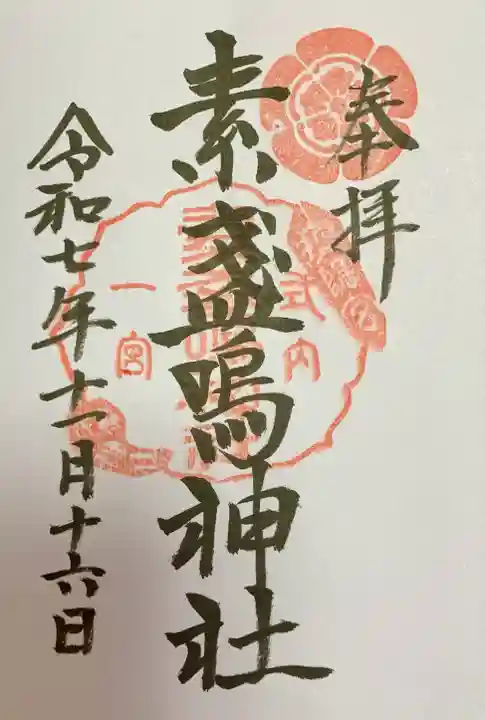 奉拝
式内
素盞嗚神社
一宮
令和七年十一月十六日